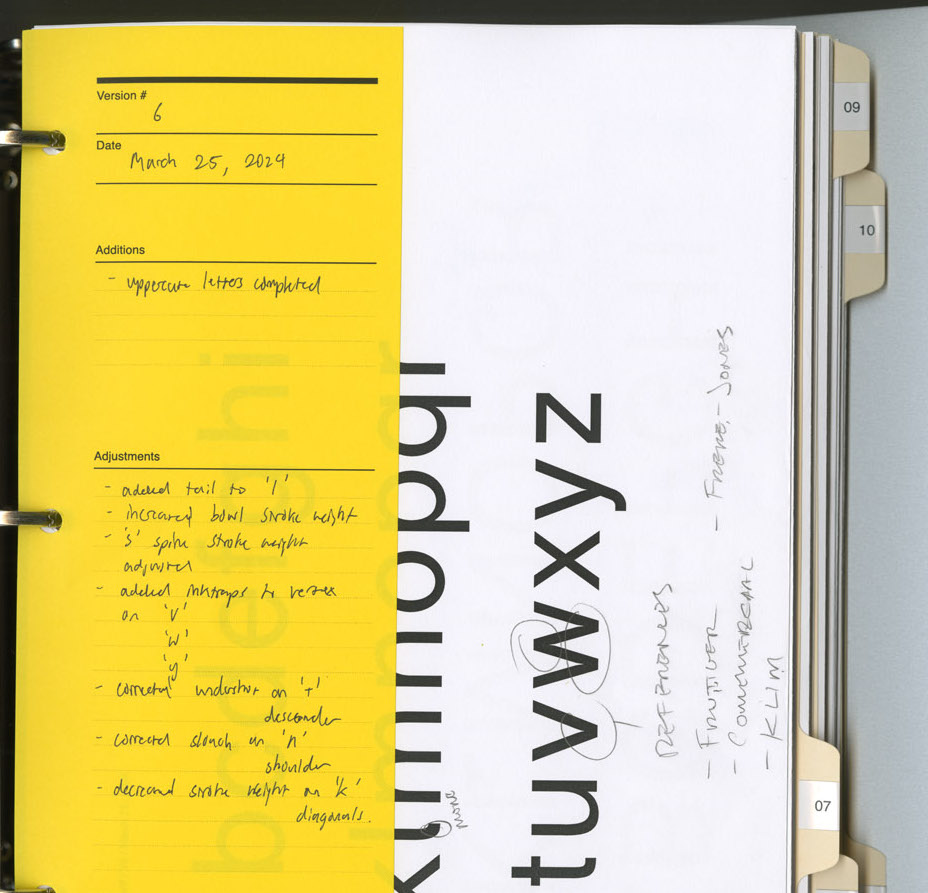 Version #
6
Date
March 25, 2024
Additions
- uppercase letters completed
Adjustments
- added tail to 'l'
- increased bowl stroke weight
- 's' spine stroke weight
adjusted
- added inktraps to vertex
on 'v'
'w'
'y'
- corrected undershot on 't'
descender
- corrected slouch on 'n'
shoulder
- decreased stroke weight on 'k'
diagonals.
bcdefghi
klmnopqr
tuvwxyz
MORE
REFERENCES
- FRUTIGER - FRERE-JONES
- COMMERCIAL
- KLIM
09
10
07